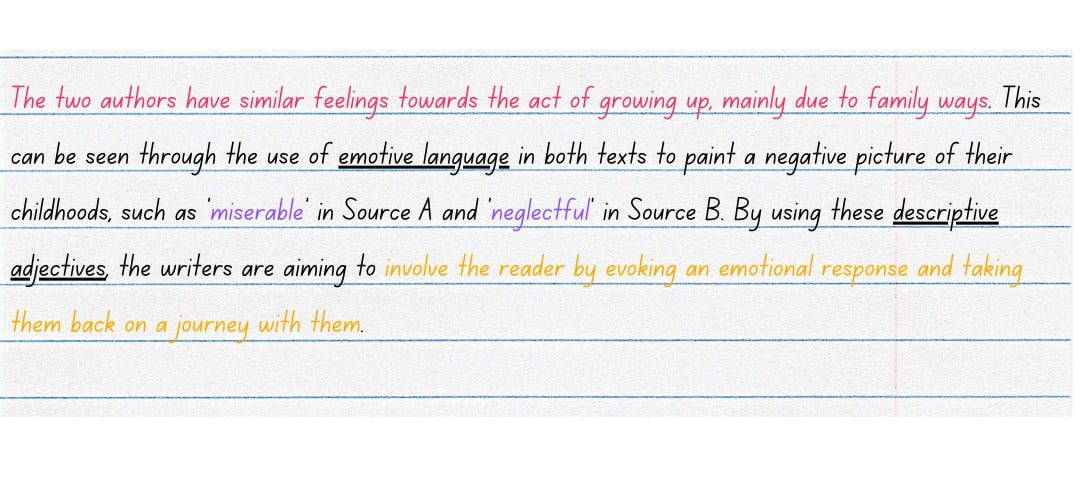 The two authors have similar feelings towards the act of growing up, mainly due to family ways. This
can be seen through the use of emotive language in both texts to paint a negative picture of their
childhoods, such as 'miserable' in Source A and 'neglectful' in Source B. By using these descriptive
adjectives, the writers are aiming to involve the reader by evoking an emotional response and taking
them back on a journey with them.